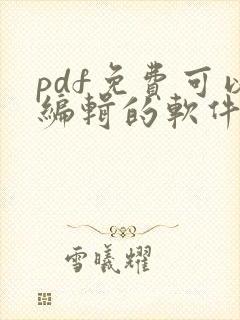 pdf免費可以
編輯的軟件
雪曦耀